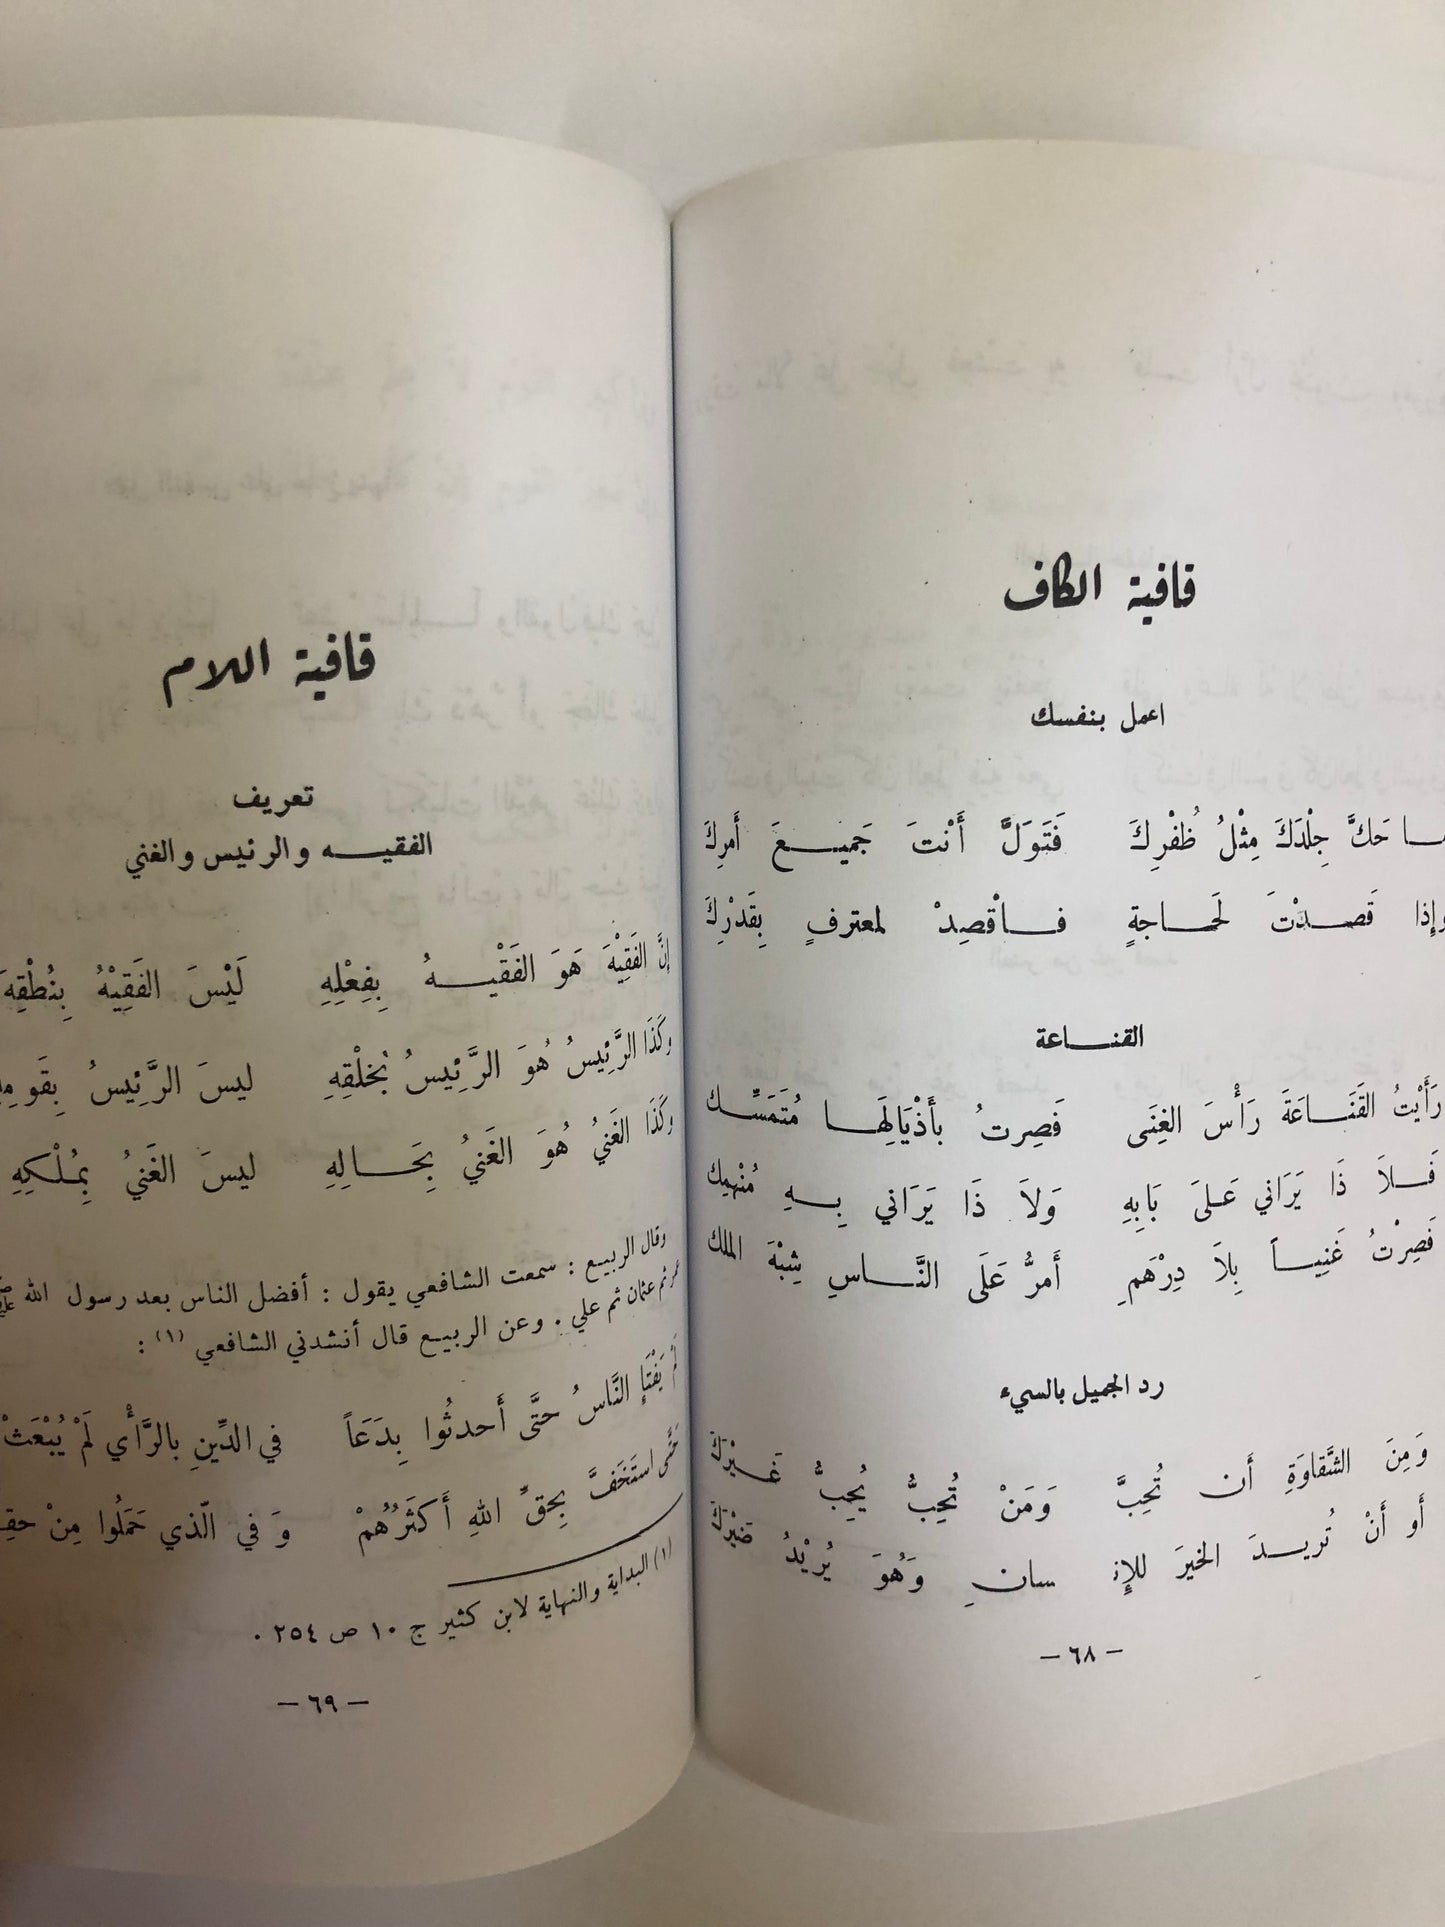 قافية الكاف
اعمل بنفسك
ـا حَكَّ جِلْدَكَ مِثْلُ ظُفْرِكَ فَتَوَلَّ أَنْتَ جَميـــعَ أَمرِكَ
وَإِذا قَصــدْتَ لَحــاجةٍ فــاقْصِدْ لمعترفٍ بِقَدْرِكَ
القنــاعة
رَأَيْتُ القَنَــاعَةَ رَأْسَ الغِنَى فَصِرتُ بأَذْيَالِهَــا مُتَمَسِّك
فَــلاَ ذَا يَرَاني عَـلىَ بَابِهِ وَلاَ ذَا يَرَاني بِــهِ مُنْهمِك
فَصِرْتُ غَنِيــاً بِلاَ دِرْهَمِ أَمرُّ عَلَى النَّــاسِ شِبْهَ الملك
رد الجميل بالسيء
وَمِنَ الشَّقاوَةِ أَن تُحِبَّ وَمَنْ تُحِبُّ يُحِبُّ غَــيْرَكَ
أَو أَنْ تُريــدَ الخيرَ للإِنـ ـسانِ وَهُوَ يُرِيْدُ ضَيْرَكَ
– ٦٨ –
قافية اللام
تعريف
الفقيــه والرئيس والغني
إِنَّ الفَقِيْهَ هَوَ الفَقْيــهُ بِفِعْلِهِ لَيْسَ الفَقِيْهُ بِنُطْقِهَ
وَكَذَا الرَّئِيسُ هُوَ الرَّئِيسُ بُخلْقِهِ ليسَ الرَّئِيسُ بِقَومِهِ
وَكَذَا الغَنيُ هُوَ الغَنيُ بِحَــالِهِ ليسَ الغَنيُ بِمُلْـكِهِ
وقال الربيـع : سمعت الشافعي يقول : أفضل الناس بعد رسول الله ﷺ
عمر ثم عثمان ثم علي . وعن الربيـع قال أنشدني الشافعي (١) :
لَمْ يَفْتَإِ النَّاسُ حتَّى أَحدثُوا بِدَعَاً في الدِّينِ بالرَّأْيِ لَمْ يُبْعَثْ
حَتَّى استَخَفَّ بِحقِّ اللهِ أَكثَرُهُمْ وَ في الّذي حَمَلُوا مِنْ
(١) البداية والنهاية لابن كثير ج ١٠ ص ٢٥٤ .
– ٦٩ –